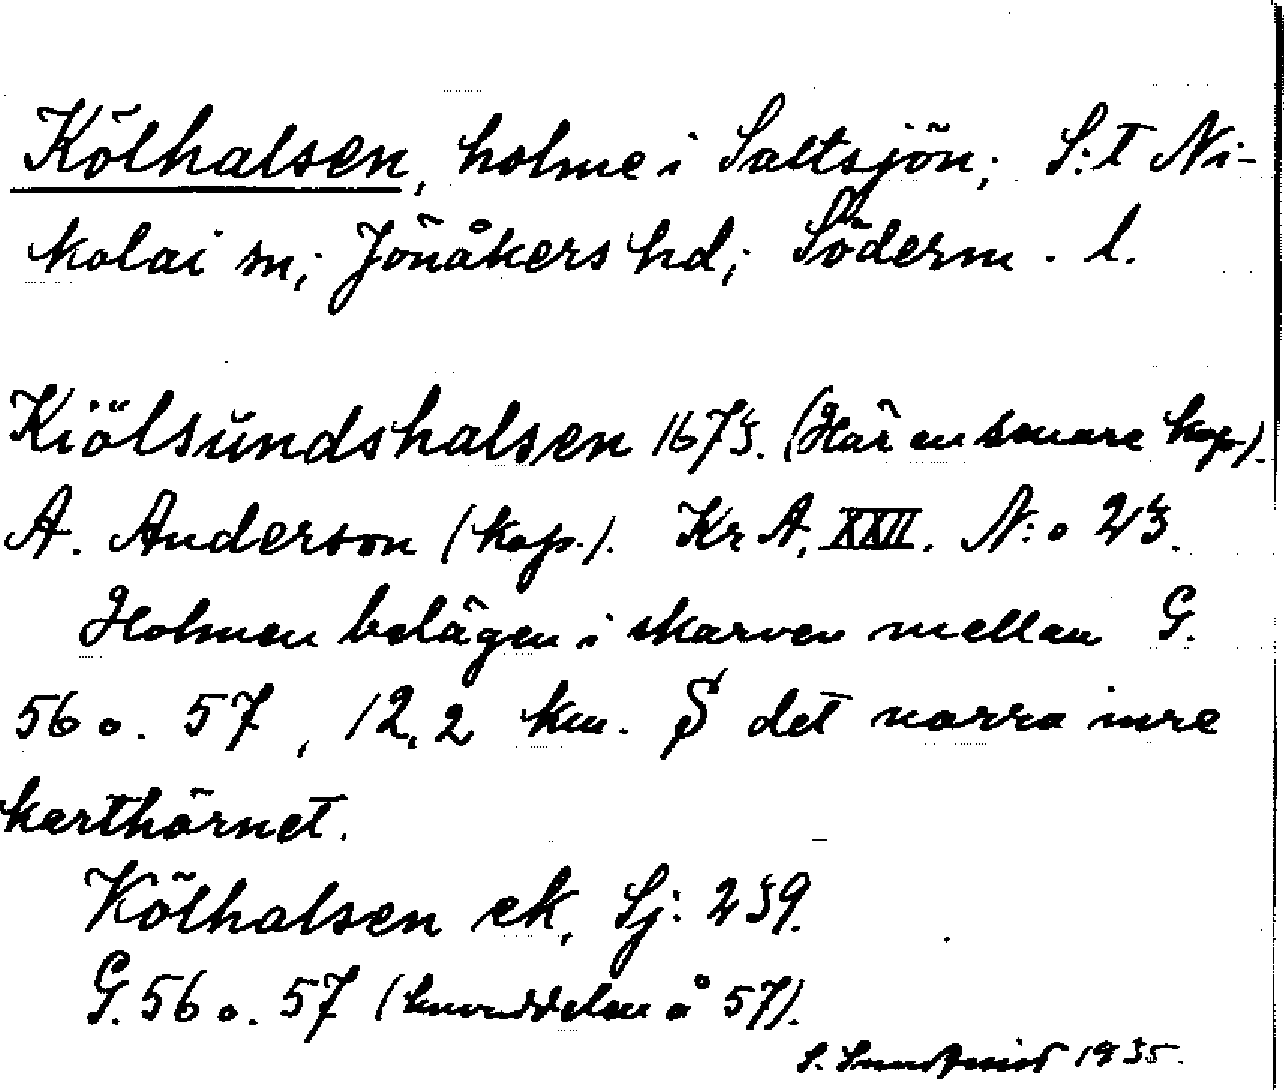 Kölhalsen, holme i Saltsjön; S:t Ni-
kolai sn; Jönåkers hd; Söderm. l.
Kiölsundshalsen 1673. (Här en senare kop).
A. Anderson (kop.). Kr A, XXII. N:o 23.
Holmen belägen i skarven mellan G.
56 o. 57, 12,2 km. S det norra inre
karthörnet.
Kölhalsen ek, Sj: 239.
G. 56 o. 57 (huvuddelen å 57).
1935.